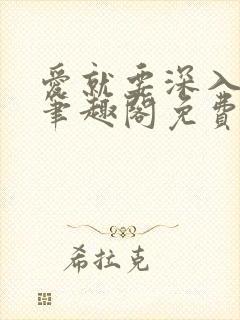 愛就要深入
筆趣閣免費
希拉克